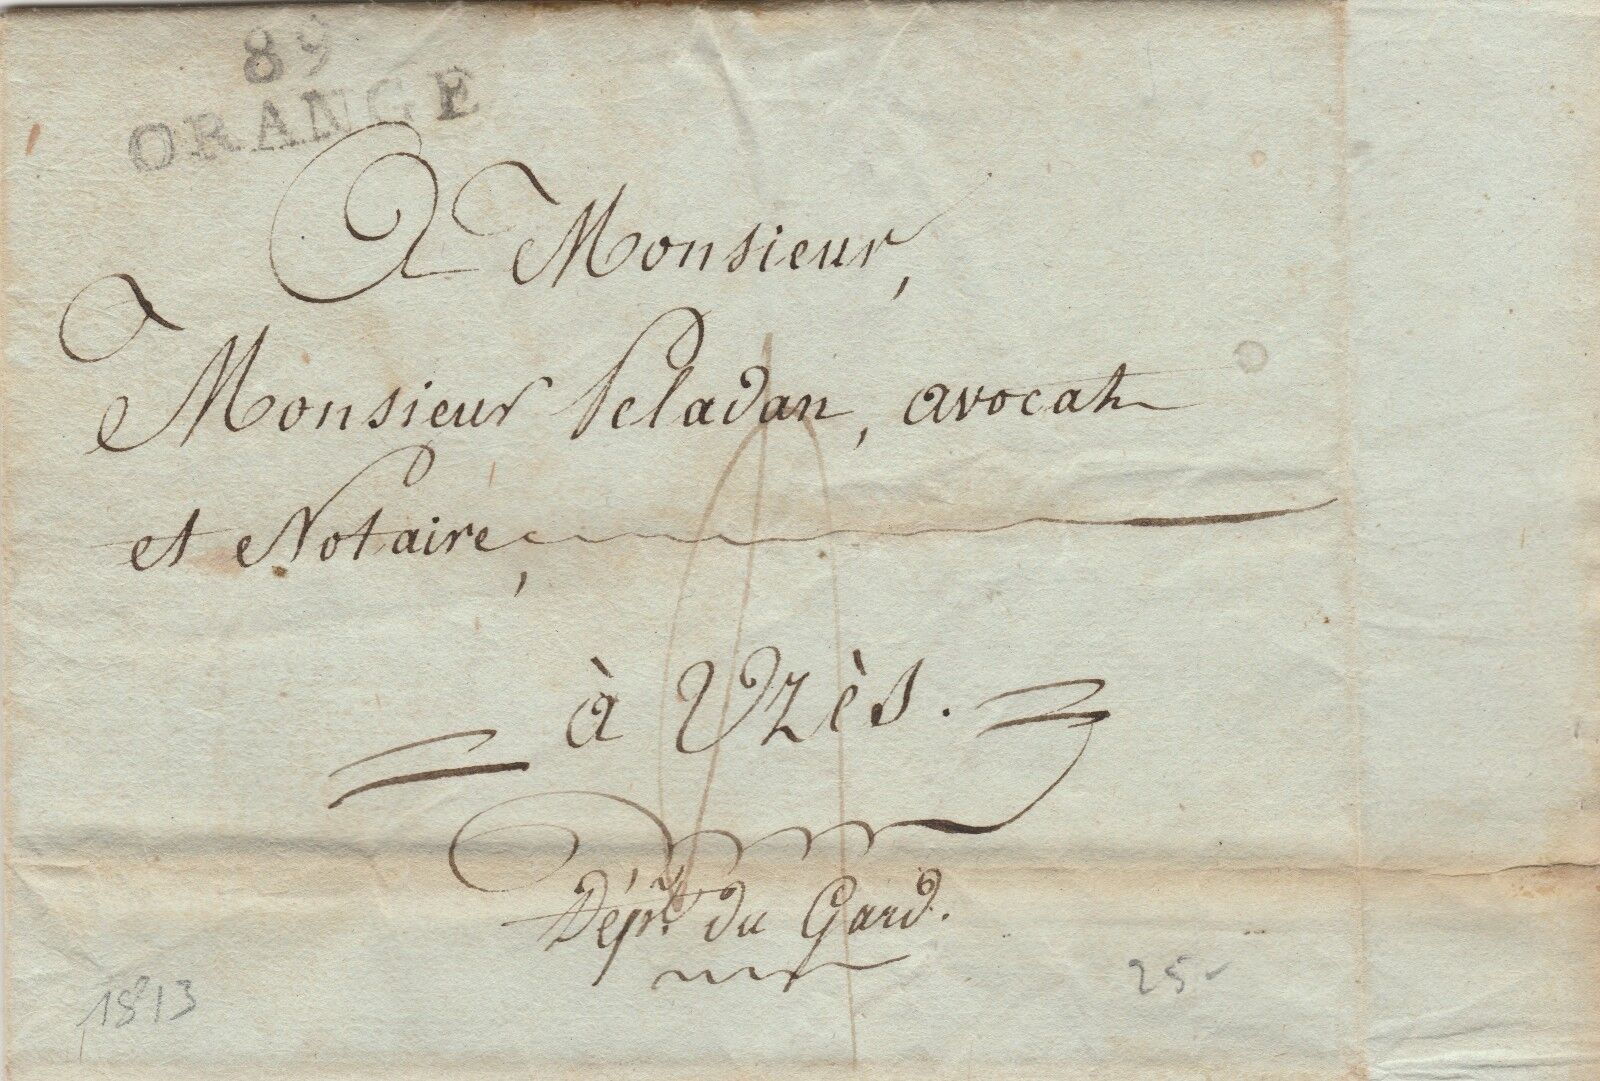 89
ORANGE
A Monsieur,
Monsieur Peladan, avocat
et Notaire,
à Uzès.
Dép.t du Gard.
1813
25-